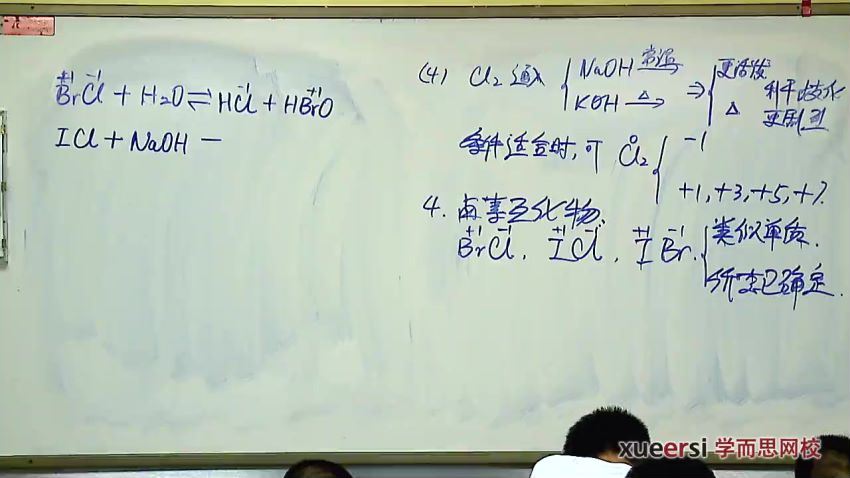 +1 -1 -1 +1
BrCl + H2O ⇌ HCl + HBrO
ICl + NaOH —
(4) Cl2 通入 { NaOH 常温
KOH △→
⇒ { 更活泼
△ 利于歧化
更剧烈
条件适宜时,可 0 Cl2 { -1
+1, +3, +5, +7.
4. 卤素互化物.
+1 -1 +1 -1 +1 -1
BrCl, ICl, IBr. { 类似单质.
价态已确定.
xueersi 学而思网校